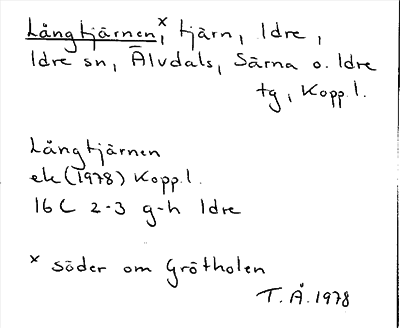 Långtjärnen,ˣ tjärn, Idre,
Idre sn, Älvdals, Särna o. Idre
tg, Kopp.l.
Långtjärnen
ek (1978) Kopp.l.
16C 2-3 g-h Idre
ˣ söder om Grötholen
T. Å. 1978